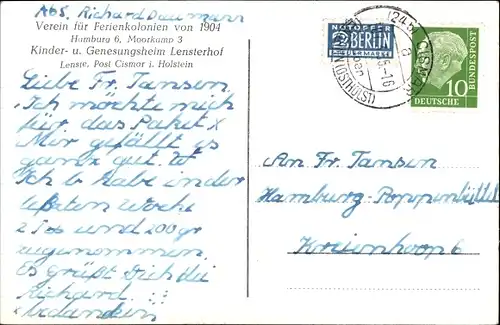 Abs. Richard Daumann
Verein für Ferienkolonien von 1904
Hamburg 6, Moorkamp 3
Kinder- u. Genesungsheim Lensterhof
Lenste, Post Cismar i. Holstein
Liebe Fr. Tamson.
Ich möchte mich
für das Paket x
Mir gefällt es
ganz gut.
Ich habe in der
letzten Woche
2 und 200 gr
zugenommen.
Es grüßt Dich dei
Richard.
x bedanken
NOTOPFER
2 BERLIN
STEUERMARKE
(24b) CISMAR
(OSTHOLST)
DEUTSCHE
BUNDESPOST
10
An Fr. Tamson
Hamburg-Poppenbüttel
Kreienhoop 6